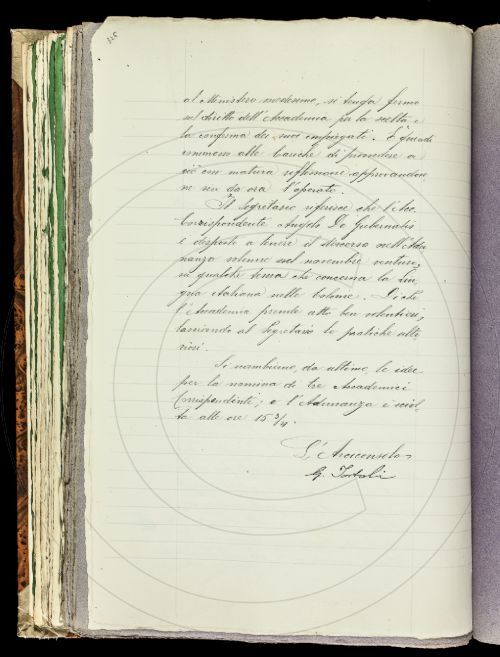 al Ministero medesimo, si tenga fermo
sul diritto dell'Accademia per la scelta e
la conferma dei suoi impiegati. È quindi
commesso alle Cariche di provvedere a
ciò con matura riflessione approvandon
ne sin da ora l'operato.
Il Segretario riferisce che l'Acc.
Corrispondente Angelo De Gubernatis
è disposto a tenere il discorso nell'Adu
nanza solenne nel novembre venturo,
su qualche tema che concerna la Lin
gua italiana nelle Colonie. Di che
l'Accademia prende atto ben volentieri,
lasciando al Segretario le pratiche ulte
riori.
Si scambiano, da ultimo, le idee
per la nomina di tre Accademici
Corrispondenti; e l'Adunanza è sciol
ta alle ore 15 3/4.
L'Arciconsolo
G. Tortoli